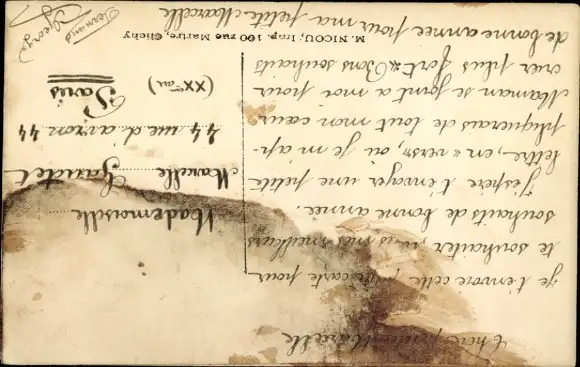 Chère petite Marcelle
je t'envoie cette petite carte pour
te souhaiter, mes meilleurs
souhaits de bonne année.
J'espère t'envoyer une petite
lettre, en « vers », où je m'ap-
pliquerais de tout mon cœur
Maman se joint a moi pour
crier plus fort « Bons souhaits
de bonne année pour ma petite Marcelle
Fernand
George
M. NICOU, Imp. 100 rue Martre, Clichy
Mademoiselle
Marcelle Gaudet
44 rue d'avron 44
Paris
(XXe ar)